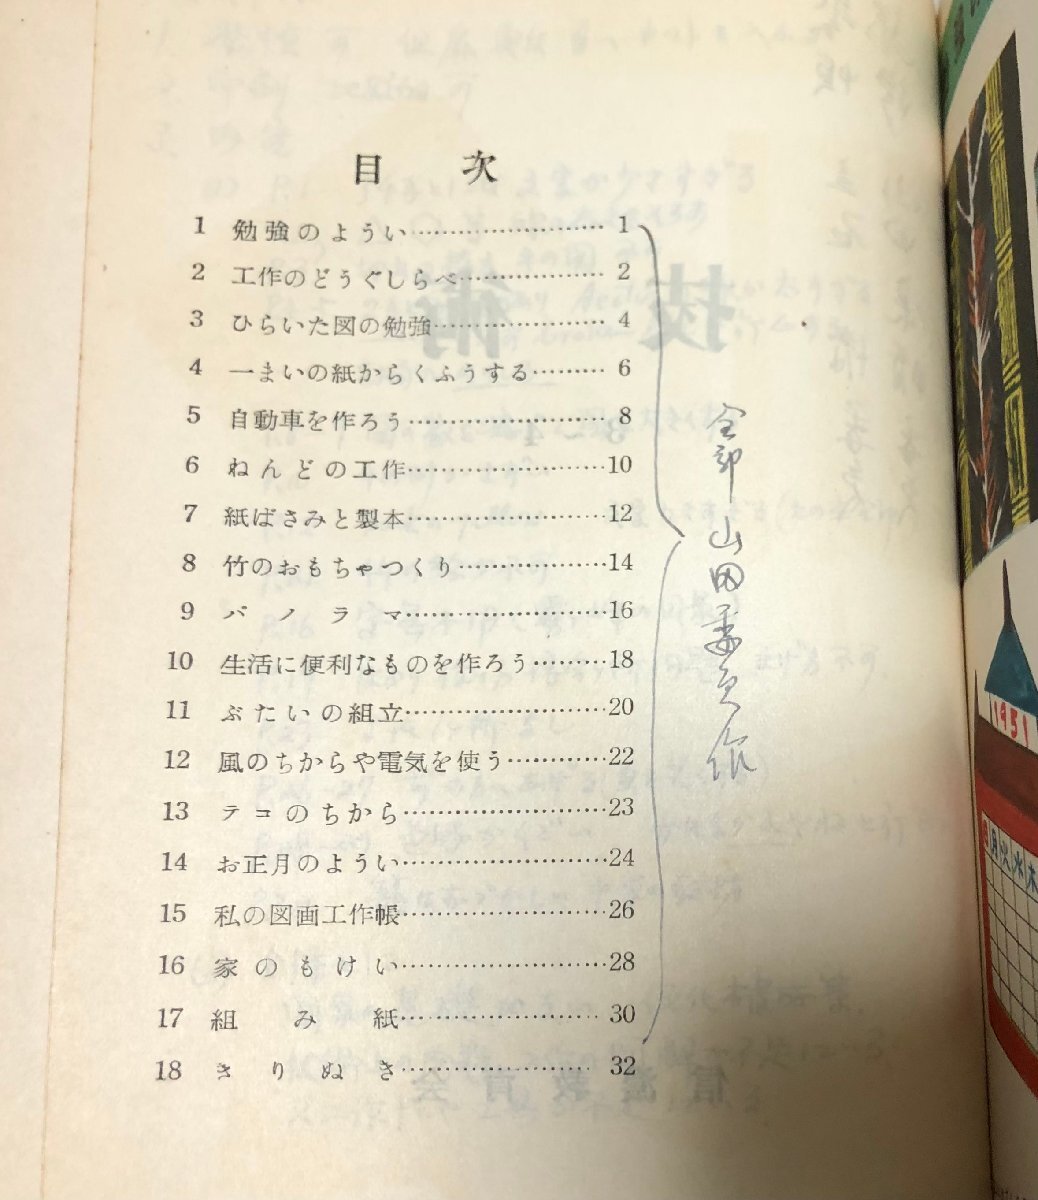 目次
1 勉強のようい…………………… 1
2 工作のどうぐしらべ……………… 2
3 ひらいた図の勉強………………… 4
4 一まいの紙からくふうする……… 6
5 自動車を作ろう…………………… 8
6 ねんどの工作……………………10
7 紙ばさみと製本…………………12
8 竹のおもちゃつくり………………14
9 パノラマ……………………16
10 生活に便利なものを作ろう………18
11 ぶたいの組立……………………20
12 風のちからや電気を使う…………22
13 テコのちから……………………23
14 お正月のようい……………………24
15 私の図画工作帳……………………26
16 家のもけい……………………28
17 組み紙…………………… 30
18 きりぬき…………………… 32
全部 山田委員作
1951
月火水木